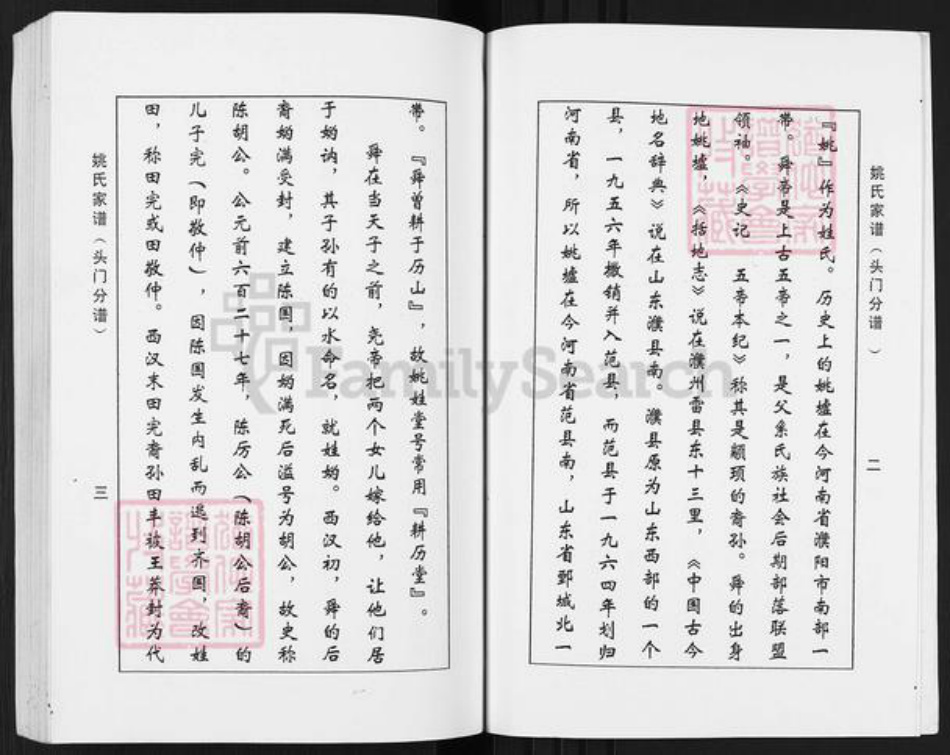 姚氏家谱（头门分谱）
二
『姚』作为姓氏。历史上的姚墟在今河南省濮阳市南部一
带。舜帝是上古五帝之一，是父系氏族社会后期部落联盟
领袖。《史记 五帝本纪》称其是颛顼的裔孙。舜的出身
地姚墟，《括地志》说在濮州雷县东十三里，《中国古今
地名辞典》说在山东濮县南。濮县原为山东西部的一个
县，一九五六年撤销并入范县，而范县于一九六四年划归
河南省，所以姚墟在今河南省范县南，山东省鄄城北一
带。『舜曾耕于历山』，故姚姓堂号常用『耕历堂』。
舜在当天子之前，尧帝把两个女儿嫁给他，让他们居
于妫讷，其子孙有的以水命名，就姓妫。西汉初，舜的后
裔妫满受封，建立陈国，因妫满死后溢号为胡公，故史称
陈胡公。公元前六百二十七年，陈厉公（陈胡公后裔）的
儿子完（即敬仲），因陈国发生内乱而逃到齐国，改姓
田，称田完或田敬仲。西汉末田完裔孙田丰被王莽封为代
姚氏家谱（头门分谱）
三
FamilySearch